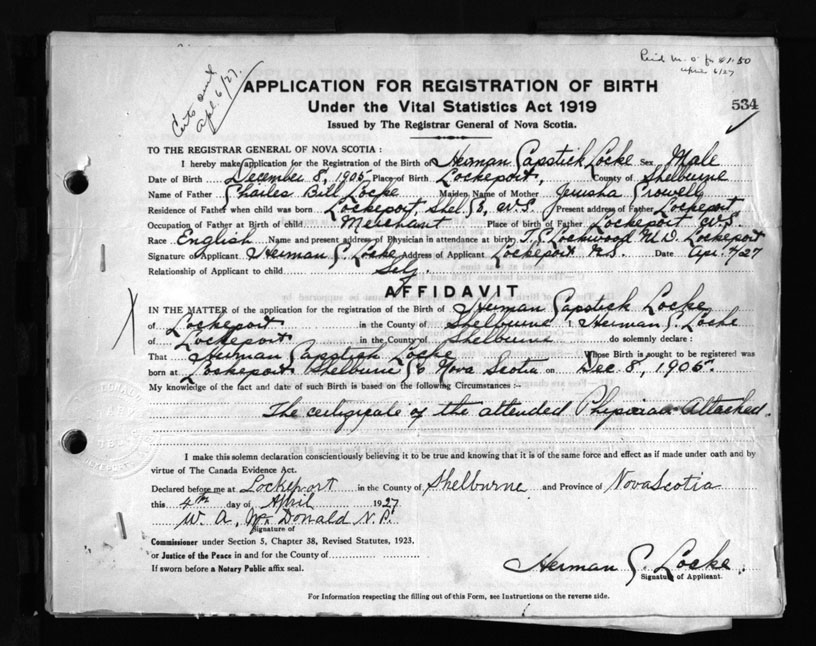 Paid M.O. for $1.50
April 6/27
Certs sent
Apl 6/27.
534
APPLICATION FOR REGISTRATION OF BIRTH
Under the Vital Statistics Act 1919
Issued by The Registrar General of Nova Scotia.
TO THE REGISTRAR GENERAL OF NOVA SCOTIA :
I hereby make application for the Registration of the Birth of Herman Capstick Locke Sex Male
Date of Birth December 8, 1905 Place of Birth Lockeport, County of Shelburne
Name of Father Charles Bill Locke Maiden Name of Mother Jerusha Crowell
Residence of Father when child was born Lockeport, Shel Co, N.S. Present address of Father Lockeport
Occupation of Father at Birth of child Merchant Place of birth of Father Lockeport N.S.
Race English Name and present address of Physician in attendance at birth Lockwood M.D. Lockeport
Signature of Applicant Herman C. Locke Address of Applicant Lockeport N.S. Date Apr. 4/27
Relationship of Applicant to child Self.
AFFIDAVIT
IN THE MATTER of the application for the registration of the Birth of Herman Capstick Locke
of Lockeport in the County of Shelburne I Herman C. Locke
of Lockeport in the County of Shelburne do solemnly declare :
That Herman Capstick Locke Whose Birth is sought to be registered was
born at Lockeport Shelburne Co Nova Scotia on Dec 8, 1905.
My knowledge of the fact and date of such Birth is based on the following Circumstances :--
The certificate of the attended Physician Attached.
I make this solemn declaration conscientiously believing it to be true and knowing that it is of the same force and effect as if made under oath and by
virtue of The Canada Evidence Act.
Declared before me at Lockeport in the County of Shelburne and Province of Nova Scotia
this 4th day of April 1927
W. A. McDonald N.P.
Signature of
Commissioner under Section 5, Chapter 38, Revised Statutes, 1923.
or Justice of the Peace in and for the County of
If sworn before a Notary Public affix seal.
Herman C. Locke.
Signature of Applicant.
For Information respecting the filling out of this Form, see Instructions on the reverse side.